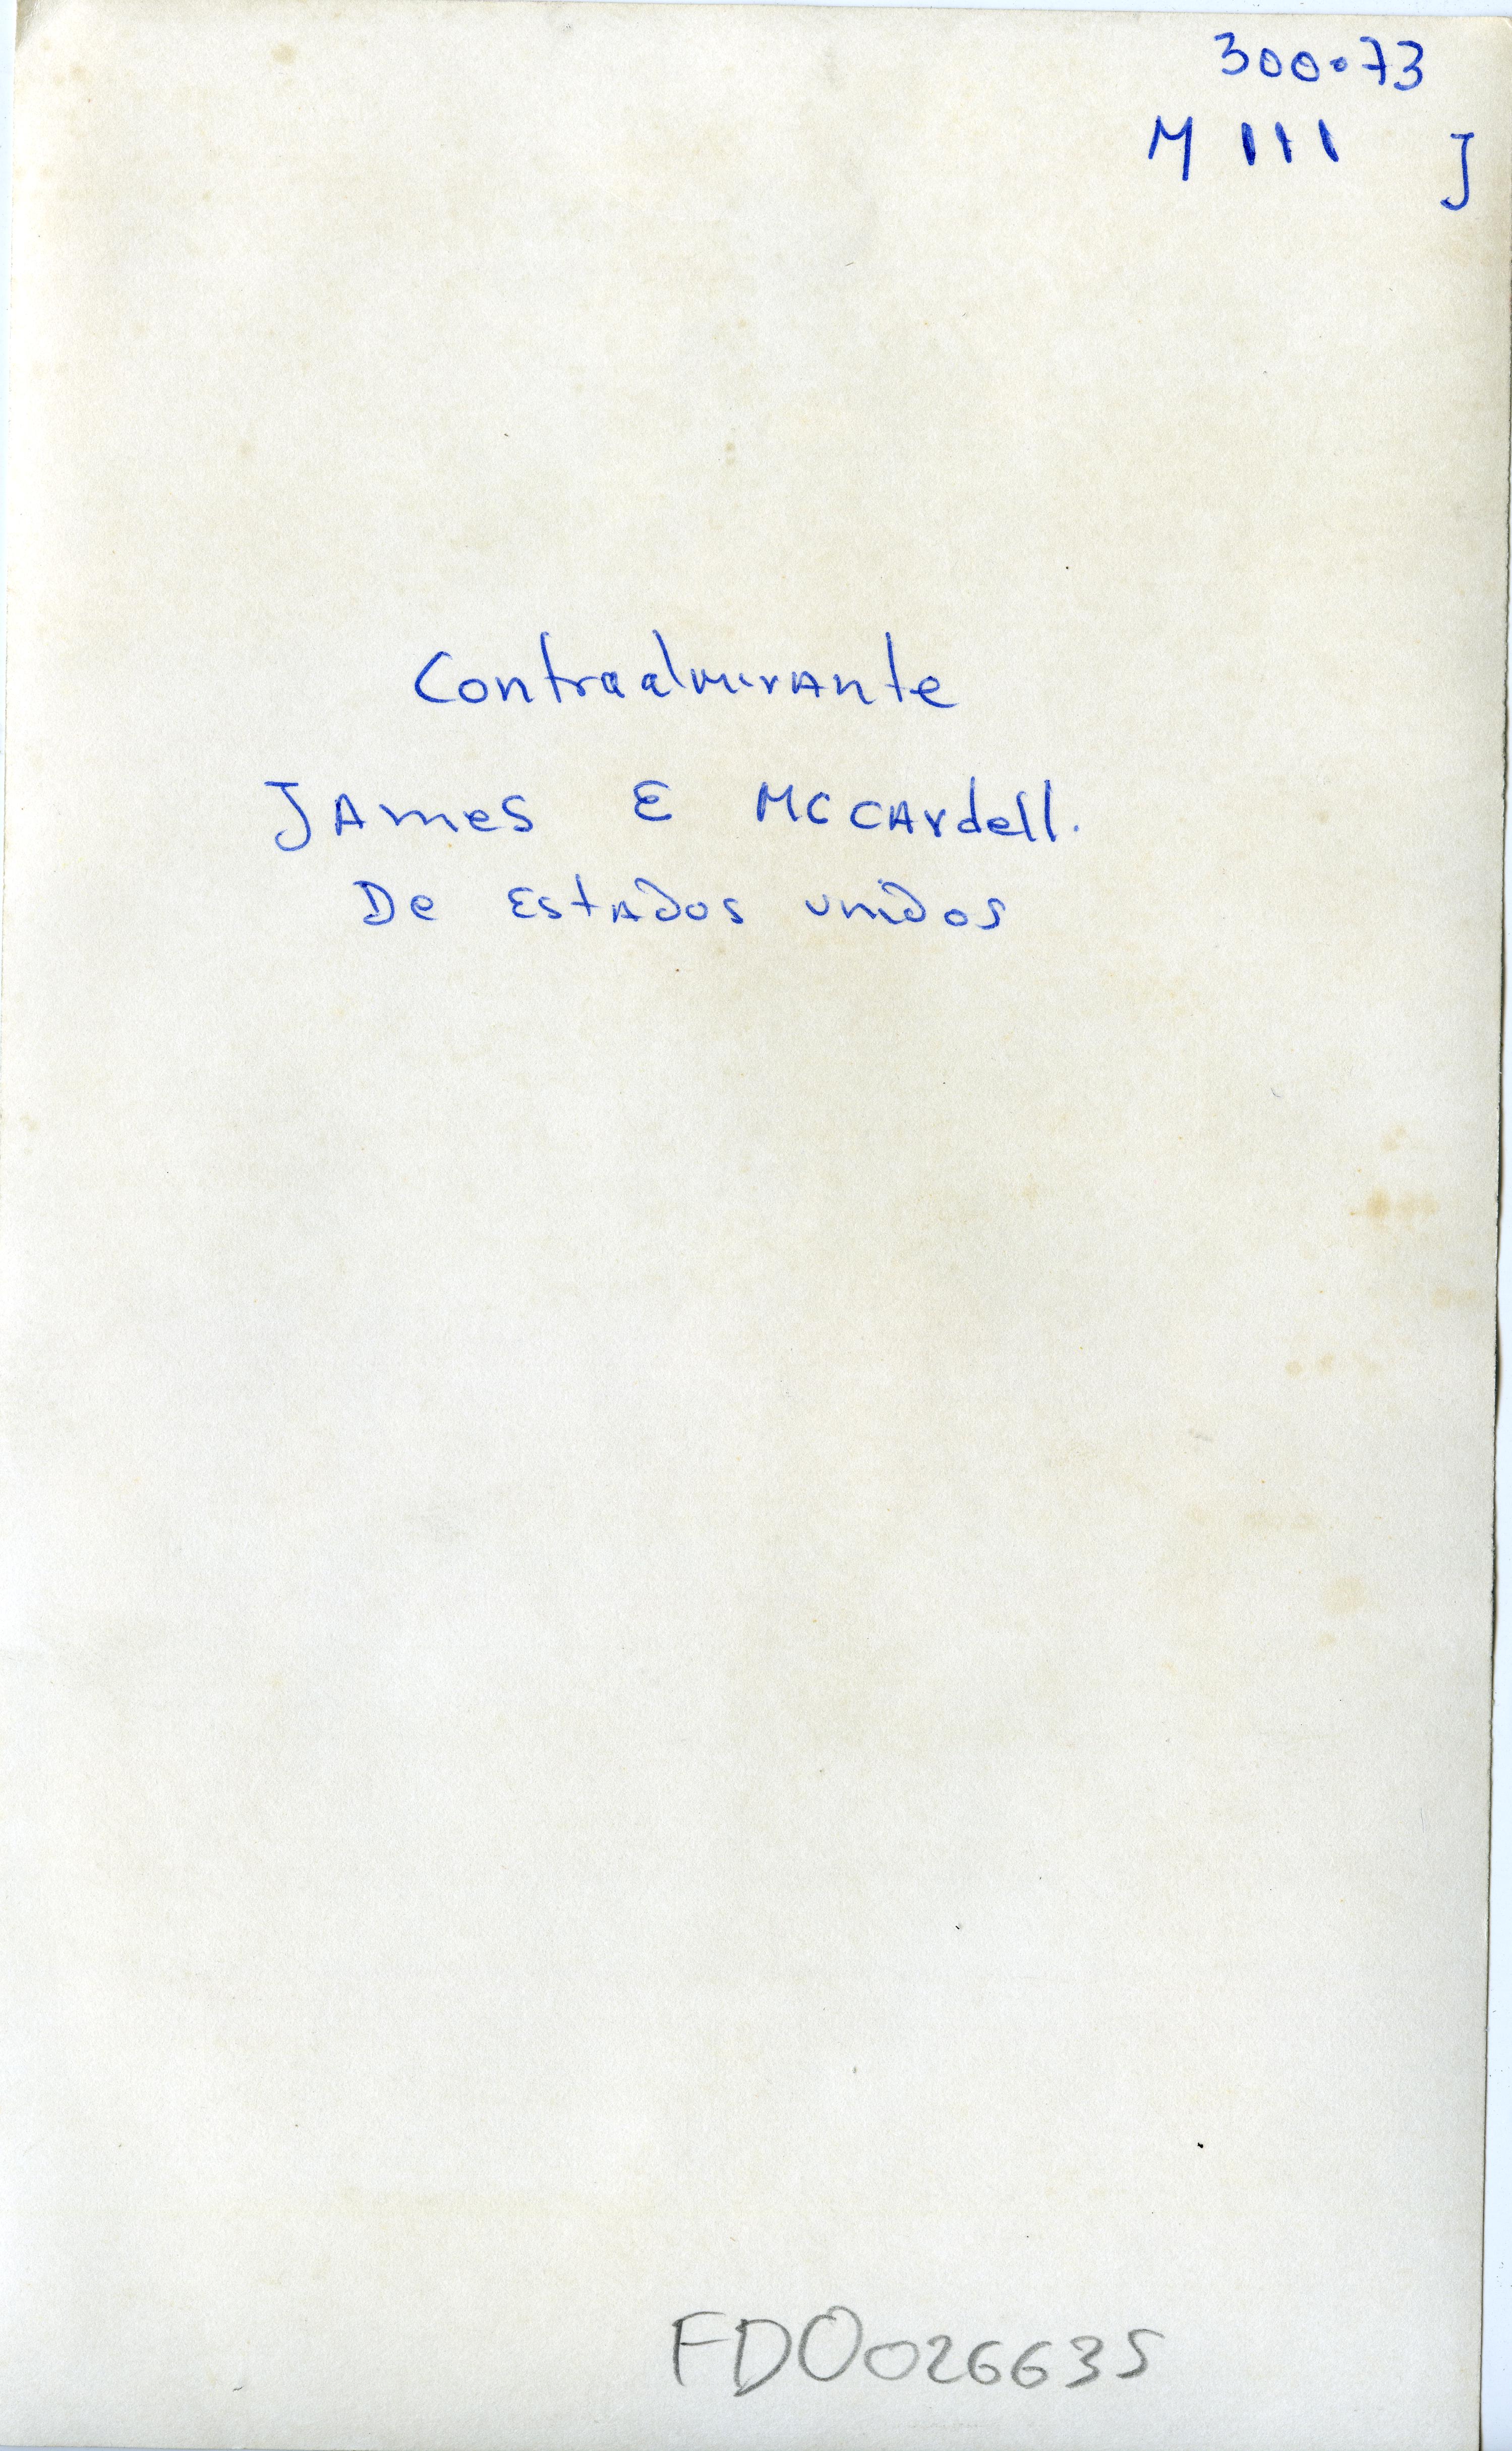 300.73
M III J
Contraalmirante
JAMES E MCCARdell.
De Estados unidos
FD0026635